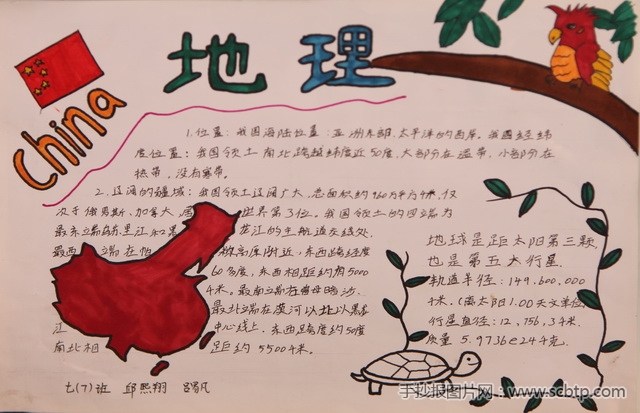 China
地理
1.位置：我国海陆位置：亚洲东部，太平洋的西岸。我国经纬
度位置：我国领土南北跨越纬度近50度，大部分在温带，小部分在
热带，没有寒带。
2.辽阔的疆域：我国领土辽阔广大，总面积约960万平方千米，仅
次于俄罗斯、加拿大，居世界第3位。我国领土的四端为
最东端在黑龙江的主航道交线处
最西端在帕米尔高原附近，东西跨经度
60多度，东西相距约5000
千米。最南端在曾母暗沙，
最北端在漠河以北
江中心线上，东西跨度约50度
南北相距约5500千米。
地球是距太阳第三颗，
也是第五大行星
轨道半径：149,600,000
千米，(离太阳1.00天文单位)
行星直径：12,756.3千米
质量 5.9736e24千克.
七(7)班 邱熙翔
手抄报图片网：www.scbtp.com